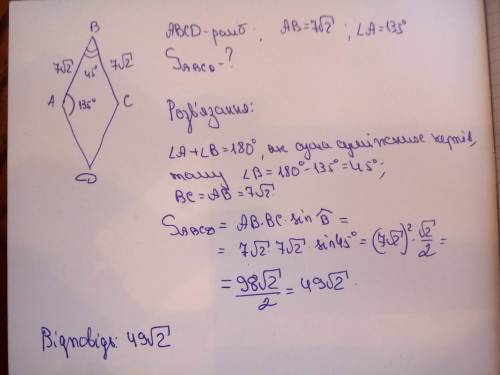 B
ABCD-ромб; AB=7√2; ∠A=135°
S_ABCD-?
7√2 45° 7√2
A 135° C
D
Розв'язання:
∠A+∠B=180°, як сума суміжних кутів,
тому ∠B=180°-135°=45°;
BC=AB=7√2
S_ABCD = AB·BC·sin B̂ =
= 7√2·7√2·sin45°=(7√2)²·√2/2=
= 98√2/2 = 49√2
Відповідь: 49√2